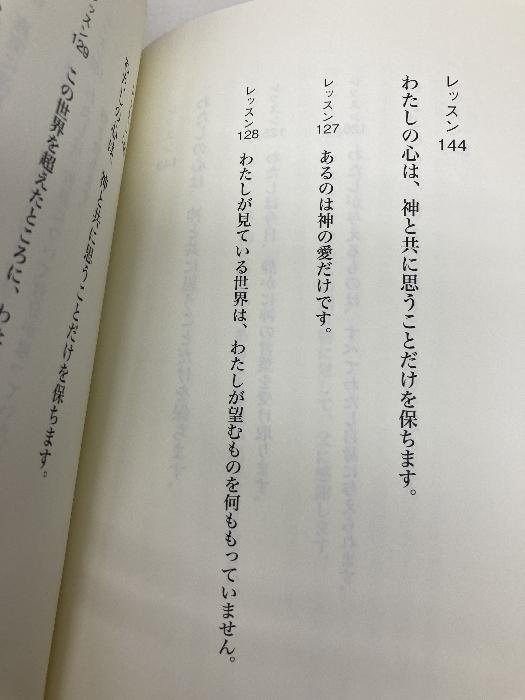 レッスン144
わたしの心は、神と共に思うことだけを保ちます。
レッスン127 あるのは神の愛だけです。
レッスン128 わたしが見ている世界は、わたしが望むものを何ももっていません。
神と共に思うことだけを保ちます。
レッスン129 この世界を超えたところに、わた